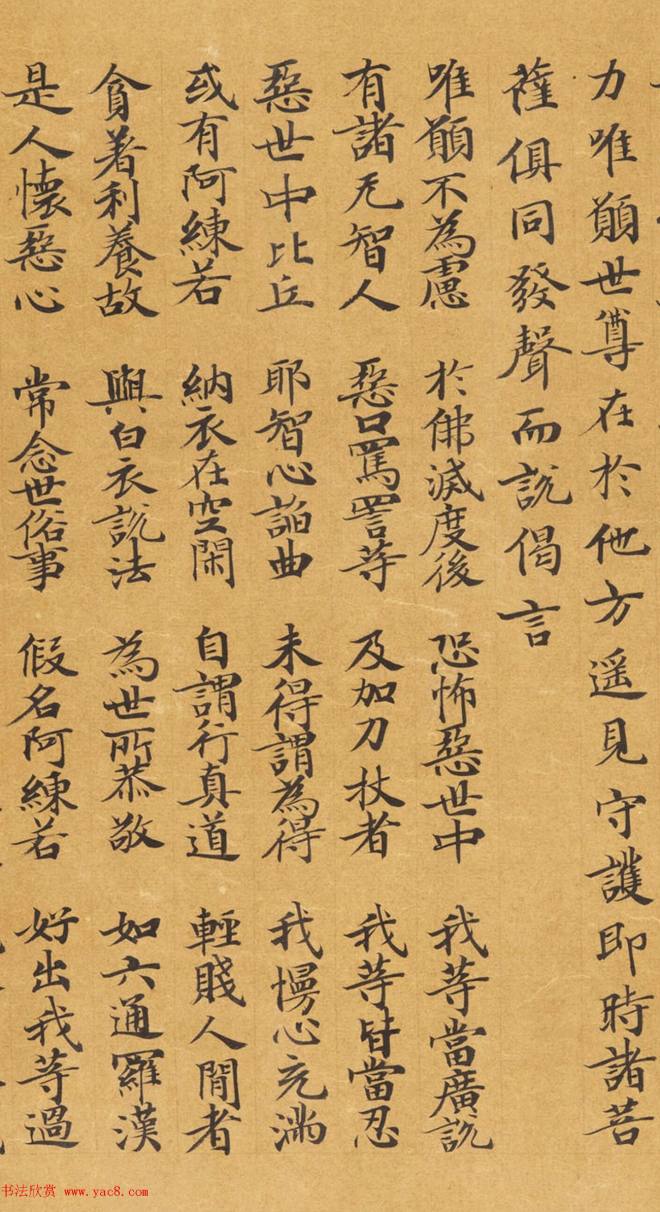 力唯願世尊在於他方遥見守護即時諸菩
薩俱同發聲而說偈言
唯願不為慮 於佛滅度後 恐怖惡世中 我等當廣說
有諸无智人 惡口罵詈等 及加刀杖者 我等皆當忍
惡世中比丘 耶智心諂曲 未得謂為得 我慢心充滿
或有阿練若 納衣在空閑 自謂行真道 輕賤人間者
貪著利養故 與白衣說法 為世所恭敬 如六通羅漢
是人懷惡心 常念世俗事 假名阿練若 好出我等過
书法欣赏 www.yac8.com